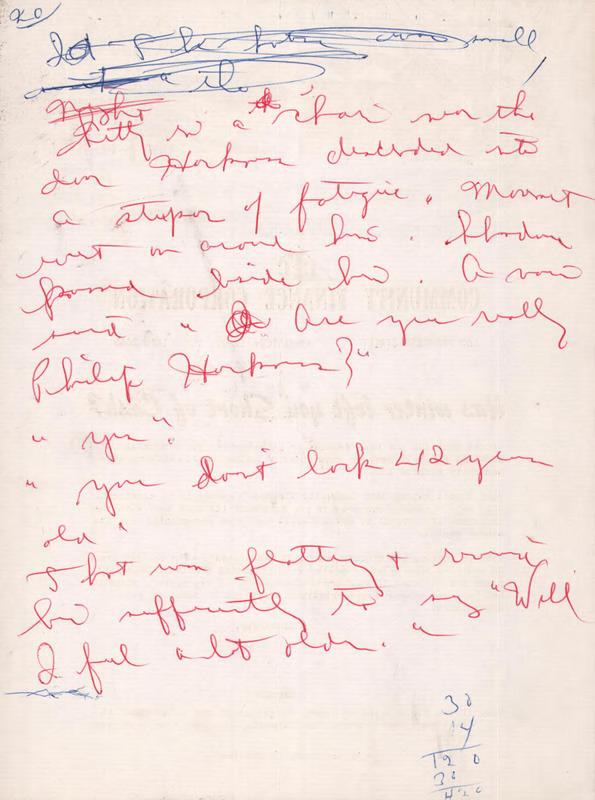 20
small,
Sitting in a chair near the
door Horkman descended into
a stupor of fatigue. Movement
went on around him. Shadows
passed beside him. A voice
said " Are you really
Philip Horkman?"
" yes".
" you don't look 42 years
old "
That was flattery & revived
him sufficiently to say "Well
I feel a lot older. "
30
14
120
30
420